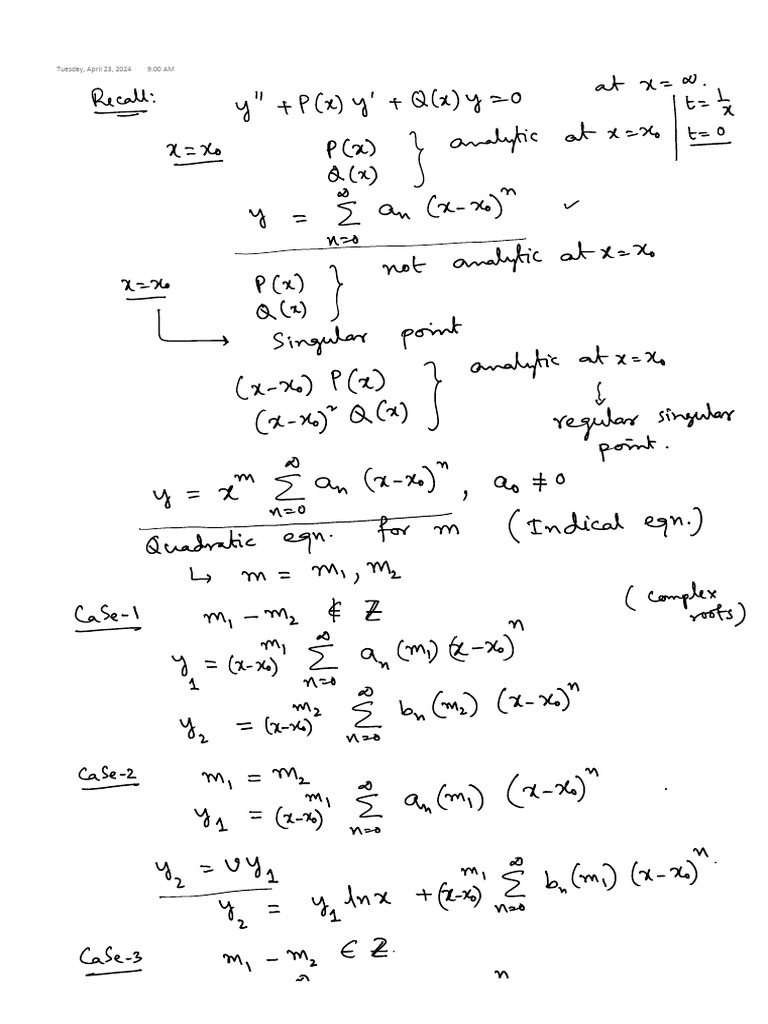 Tuesday, April 23, 2024 9:00 AM
Recall: y'' + P(x) y' + Q(x) y = 0 at x = ∞.
t = 1/x
t = 0
x = x₀ P(x) Q(x) } analytic at x = x₀
y = ∑_{n=0}^{∞} aₙ (x-x₀)ⁿ ✓
x = x₀ P(x) Q(x) } not analytic at x = x₀
↳ Singular point
(x-x₀) P(x) (x-x₀)² Q(x) } analytic at x = x₀
⇓
regular singular
point.
y = x^m ∑_{n=0}^{∞} aₙ (x-x₀)ⁿ, a₀ ≠ 0
Quadratic eqn. for m (Indical eqn.)
↳ m = m₁, m₂
Case-1 m₁ - m₂ ∉ ℤ (complex
roots)
y₁ = (x-x₀)^{m₁} ∑_{n=0}^{∞} aₙ(m₁) (x-x₀)ⁿ
y₂ = (x-x₀)^{m₂} ∑_{n=0}^{∞} bₙ(m₂) (x-x₀)ⁿ
Case-2 m₁ = m₂
y₁ = (x-x₀)^{m₁} ∑_{n=0}^{∞} aₙ(m₁) (x-x₀)ⁿ.
y₂ = v y₁
y₂ = y₁ ln x + (x-x₀)^{m₁} ∑_{n=0}^{∞} bₙ(m₁) (x-x₀)ⁿ.
Case-3 m₁ - m₂ ∈ ℤ.
n